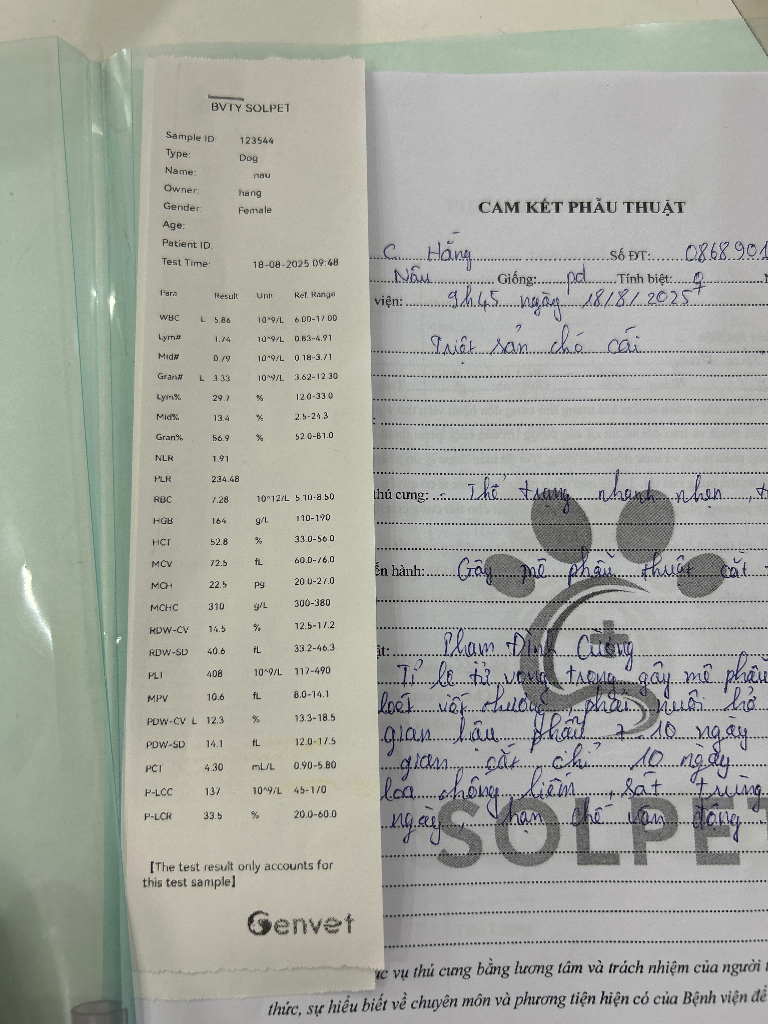 BVTY SOLPET
Sample ID: 123544
Type: Dog
Name: nau
Owner: hang
Gender: Female
Age:
Patient ID:
Test Time: 18-08-2025 09:48
Para Result Unit Ref. Range
WBC L 5.86 10^9/L 6.00-17.00
Lym# 1.74 10^9/L 0.83-4.91
Mid# 0.79 10^9/L 0.18-3.71
Gran# L 3.33 10^9/L 3.62-12.30
Lym% 29.7 % 12.0-33.0
Mid% 13.4 % 2.5-24.3
Gran% 56.9 % 52.0-81.0
NLR 1.91
PLR 234.48
RBC 7.28 10^12/L 5.10-8.50
HGB 164 g/L 110-190
HCT 52.8 % 33.0-56.0
MCV 72.5 fL 60.0-76.0
MCH 22.5 pg 20.0-27.0
MCHC 310 g/L 300-380
RDW-CV 14.5 % 12.5-17.2
RDW-SD 40.6 fL 33.2-46.3
PLT 408 10^9/L 117-490
MPV 10.6 fL 8.0-14.1
PDW-CV L 12.3 % 13.3-18.5
PDW-SD 14.1 fL 12.0-17.5
PCT 4.30 mL/L 0.90-5.80
P-LCC 137 10^9/L 45-170
P-LCR 33.5 % 20.0-60.0
[The test result only accounts for
this test sample]
Genvet
CAM KẾT PHẪU THUẬT
C. Hằng Số ĐT: 0868901
Nâu Giống: pd Tính biệt: ♀
viện: 9h45 ngày 18/8/2025
Triệt sản chó cái
thú cưng: - Thể trạng nhanh nhẹn, t
ến hành: Gây mê phẫu thuật cắt
ật: Phạm Đình Cường
Tỉ lệ tử vong trong gây mê phẫu
loét vết thương, phải nuôi hở
gian hậu phẫu 7-10 ngày
gian cắt chỉ 10 ngày
loa chống liếm, sát trùng
ngày, hạn chế vận động
SOLPET
ục vụ thú cưng bằng lương tâm và trách nhiệm của người t
thức, sự hiểu biết về chuyên môn và phương tiện hiện có của Bệnh viện để